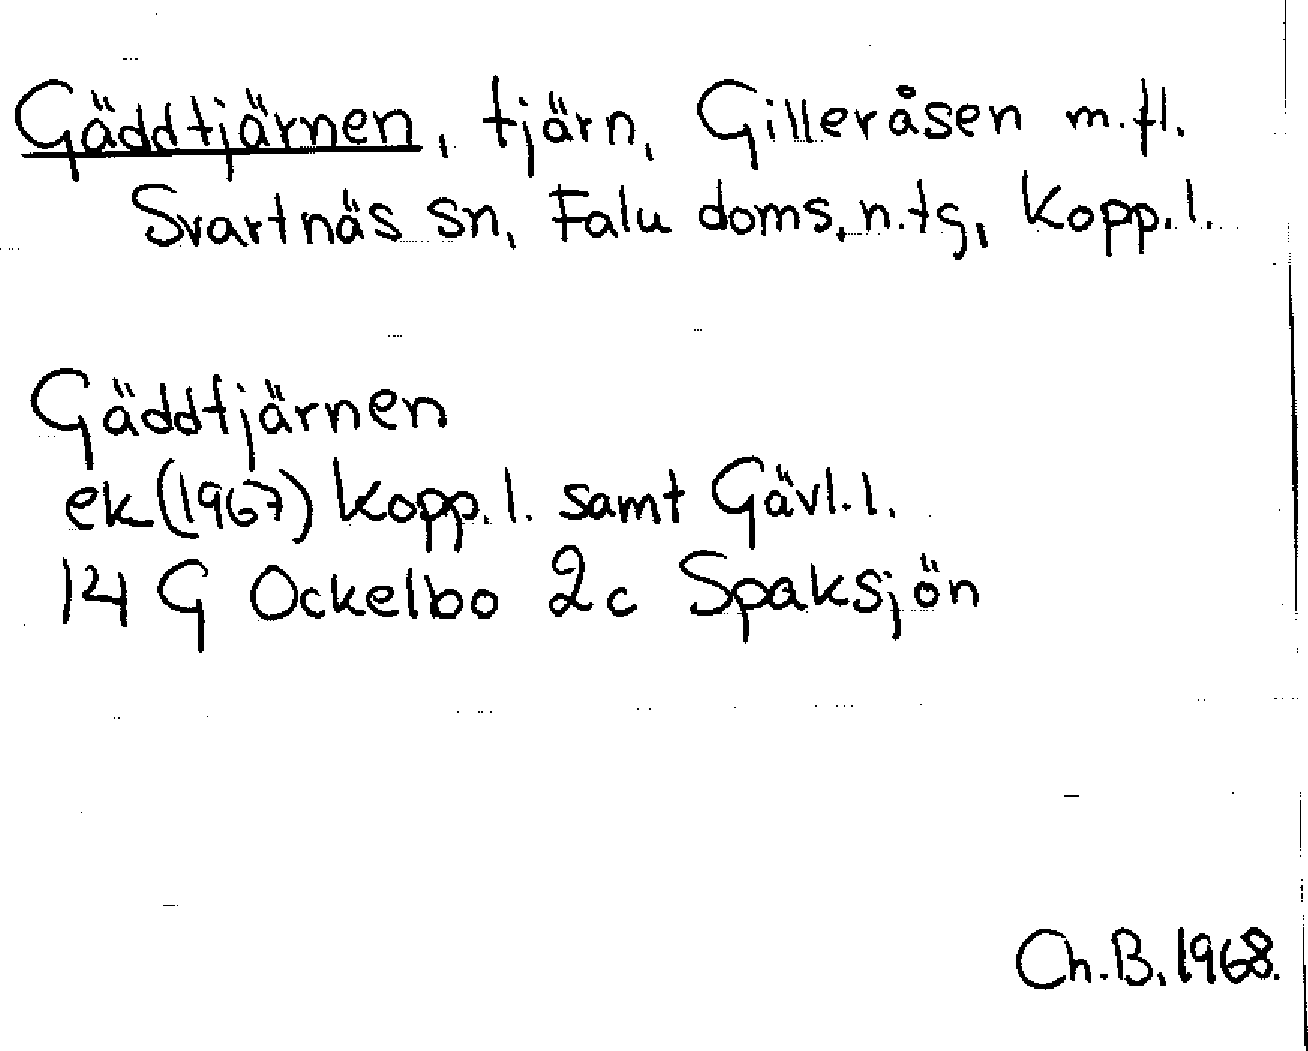 Gäddtjärnen, tjärn, Gilleråsen m.fl.
Svartnäs sn, Falu doms. n. tg, Kopp. l.
Gäddtjärnen
ek (1967) Kopp. l. samt Gävl. l.
14 G Ockelbo 2c Spaksjön
Ch. B. 1968.